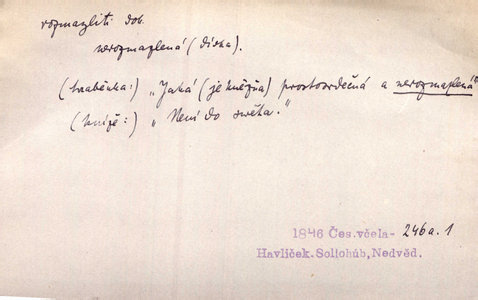 rozmazliti dok.
nerozmazlená (dívka).
(hraběnka:) „Jaká (je kněžna) prostosrdečná a nerozmazlená"
(kníže:) „Není do swěta."
1846 Čes.včela- 246a.1
Havlíček.Sollohúb,Nedvěd.